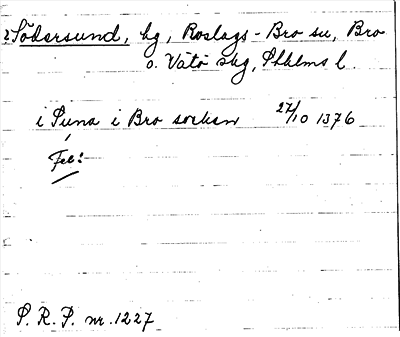 2 Södersund, hg, Roslags-Bro sn, Bro
o. Vätö skg, Sthlms l.
i Suna i Bro sorken 27/10 1376
Fel:
S. R. P. nr. 1227